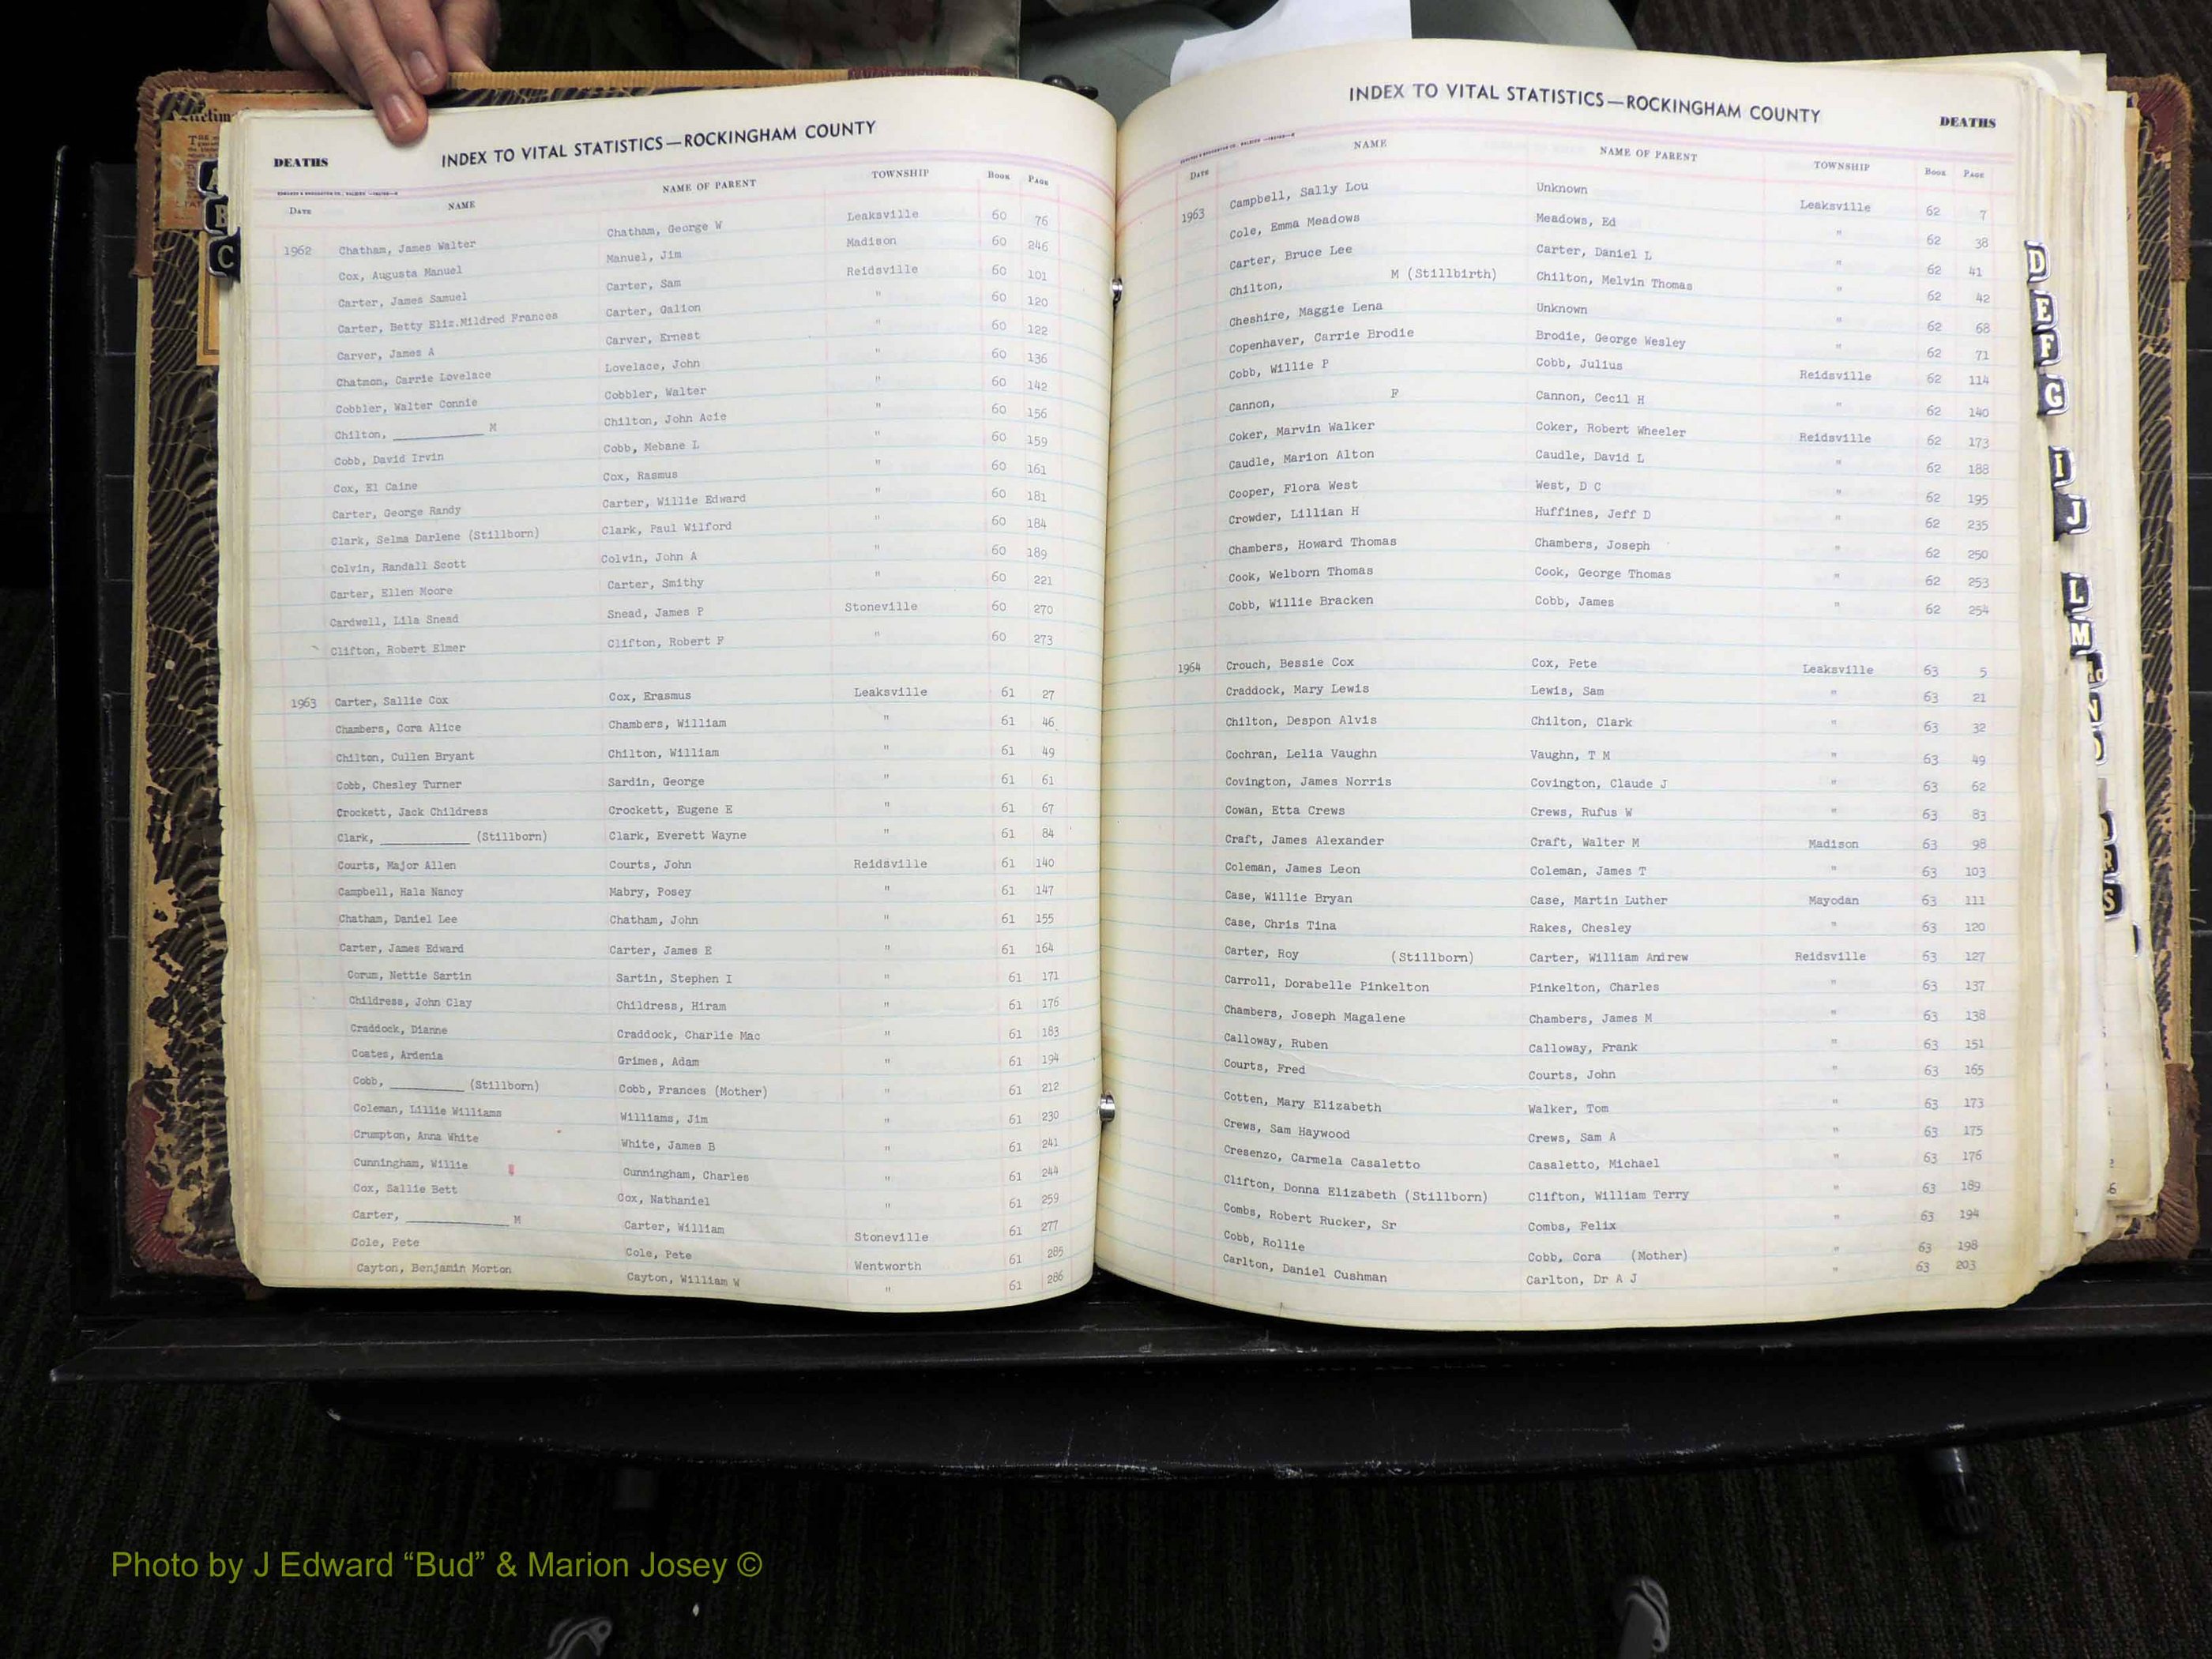 DEATHS INDEX TO VITAL STATISTICS—ROCKINGHAM COUNTY
DATE NAME NAME OF PARENT TOWNSHIP BOOK PAGE
1962 Chatham, James Walter Chatham, George W Leaksville 60 76
Cox, Augusta Manuel Manuel, Jim Madison 60 246
Carter, James Samuel Carter, Sam Reidsville 60 101
Carter, Betty Eliz.Mildred Frances Carter, Galion " 60 120
Carver, James A Carver, Ernest " 60 122
Chatmon, Carrie Lovelace Lovelace, John " 60 136
Cobbler, Walter Connie Cobbler, Walter " 60 142
Chilton, ____________ M Chilton, John Acie " 60 156
Cobb, David Irvin Cobb, Mebane L " 60 159
Cox, El Caine Cox, Rasmus " 60 161
Carter, George Randy Carter, Willie Edward " 60 181
Clark, Selma Darlene (Stillborn) Clark, Paul Wilford " 60 184
Colvin, Randall Scott Colvin, John A " 60 189
Carter, Ellen Moore Carter, Smithy " 60 221
Cardwell, Lila Snead Snead, James P Stoneville 60 270
Clifton, Robert Elmer Clifton, Robert F " 60 273
1963 Carter, Sallie Cox Cox, Erasmus Leaksville 61 27
Chambers, Cora Alice Chambers, William " 61 46
Chilton, Cullen Bryant Chilton, William " 61 49
Cobb, Chesley Turner Sardin, George " 61 61
Crockett, Jack Childress Crockett, Eugene E " 61 67
Clark, ____________ (Stillborn) Clark, Everett Wayne " 61 84
Courts, Major Allen Courts, John Reidsville 61 140
Campbell, Hala Nancy Mabry, Posey " 61 147
Chatham, Daniel Lee Chatham, John " 61 155
Carter, James Edward Carter, James E " 61 164
Corum, Nettie Sartin Sartin, Stephen I " 61 171
Childress, John Clay Childress, Hiram " 61 176
Craddock, Dianne Craddock, Charlie Mac " 61 183
Coates, Ardenia Grimes, Adam " 61 194
Cobb, __________ (Stillborn) Cobb, Frances (Mother) " 61 212
Coleman, Lillie Williams Williams, Jim " 61 230
Crumpton, Anna White White, James B " 61 241
Cunningham, Willie Cunningham, Charles " 61 244
Cox, Sallie Bett Cox, Nathaniel " 61 259
Carter, ______________ M Carter, William Stoneville 61 277
Cole, Pete Cole, Pete Wentworth 61 285
Cayton, Benjamin Morton Cayton, William W " 61 286
INDEX TO VITAL STATISTICS—ROCKINGHAM COUNTY DEATHS
DATE NAME NAME OF PARENT TOWNSHIP BOOK PAGE
1963 Campbell, Sally Lou Unknown Leaksville 62 7
Cole, Emma Meadows Meadows, Ed " 62 38
Carter, Bruce Lee Carter, Daniel L " 62 41
Chilton, M (Stillbirth) Chilton, Melvin Thomas " 62 42
Cheshire, Maggie Lena Unknown " 62 68
Copenhaver, Carrie Brodie Brodie, George Wesley " 62 71
Cobb, Willie P Cobb, Julius Reidsville 62 114
Cannon, F Cannon, Cecil H " 62 140
Coker, Marvin Walker Coker, Robert Wheeler Reidsville 62 173
Caudle, Marion Alton Caudle, David L " 62 188
Cooper, Flora West West, D C " 62 195
Crowder, Lillian H Huffines, Jeff D " 62 235
Chambers, Howard Thomas Chambers, Joseph " 62 250
Cook, Welborn Thomas Cook, George Thomas " 62 253
Cobb, Willie Bracken Cobb, James " 62 254
1964 Crouch, Bessie Cox Cox, Pete Leaksville 63 5
Craddock, Mary Lewis Lewis, Sam " 63 21
Chilton, Despon Alvis Chilton, Clark " 63 32
Cochran, Lelia Vaughn Vaughn, T M " 63 49
Covington, James Norris Covington, Claude J " 63 62
Cowan, Etta Crews Crews, Rufus W " 63 83
Craft, James Alexander Craft, Walter M Madison 63 98
Coleman, James Leon Coleman, James T " 63 103
Case, Willie Bryan Case, Martin Luther Mayodan 63 111
Case, Chris Tina Rakes, Chesley " 63 120
Carter, Roy (Stillborn) Carter, William Andrew Reidsville 63 127
Carroll, Dorabelle Pinkelton Pinkelton, Charles " 63 137
Chambers, Joseph Magalene Chambers, James M " 63 138
Calloway, Ruben Calloway, Frank " 63 151
Courts, Fred Courts, John " 63 165
Cotten, Mary Elizabeth Walker, Tom " 63 173
Crews, Sam Haywood Crews, Sam A " 63 175
Cresenzo, Carmela Casaletto Casaletto, Michael " 63 176
Clifton, Donna Elizabeth (Stillborn) Clifton, William Terry " 63 189
Combs, Robert Rucker, Sr Combs, Felix " 63 194
Cobb, Rollie Cobb, Cora (Mother) " 63 198
Carlton, Daniel Cushman Carlton, Dr A J " 63 203
A
B
C
D
E
F
G
I
J
L
M
N
O
R
S
Photo by J Edward “Bud” & Marion Josey ©